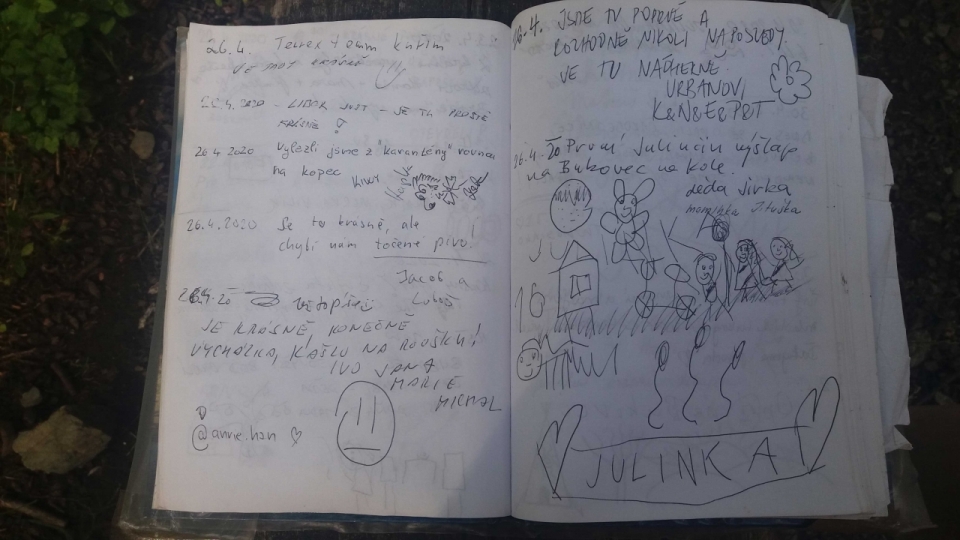 26.4. Terrex team Kuřim
25.4.2020 - LIBOR JUST - JE TU PROSTĚ
KRÁSNĚ
26.4 2020 Vylezli jsme z "karantény" rovnou
na kopec
26.4.2020 Je to krásně, ale
chybí nám točené pivo!
Jacob a
Luboš
JE KRÁSNĚ, KONEČNĚ
VYCHÁZKA, KAŠLU NA ROUŠKU!
IVO JANA
MARIE
MICHAL
@anvie.han
26.4. JSME TU POPRVÉ A
ROZHODNĚ NIKOLI NAPOSLEDY
VE TU NÁDHERNĚ
URBANOVI
K&N&E&P&T
26.4.-20 První Julinčin výšlap
na Bukovec na kole.
děda Jirka
maminka Jituška
JU
16
JULINKA